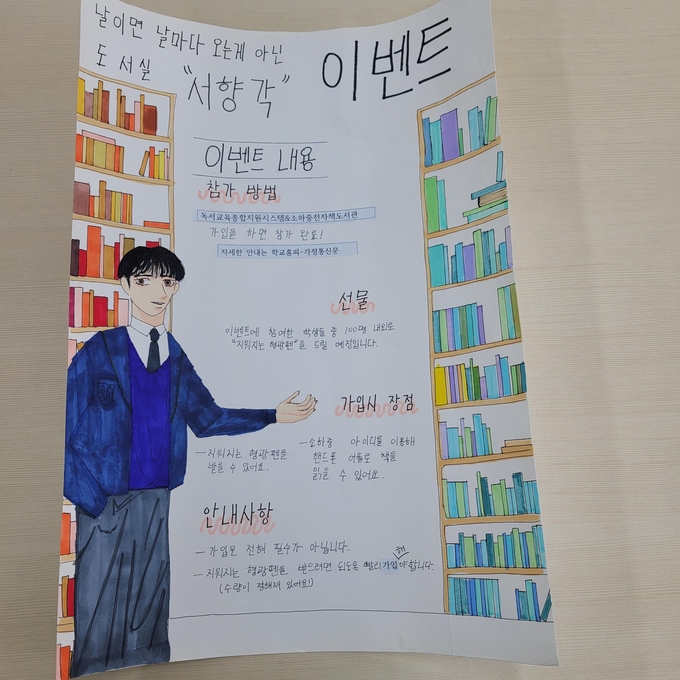 날이면 날마다 오는게 아닌
도서실 "서향각" 이벤트
이벤트 내용
참가 방법
독서교육종합지원시스템&소하중전자책도서관
가입을 하면 참가 완료!
자세한 안내는 학교홈피-가정통신문
선물
이벤트에 참여한 학생들 중 100명 내외로
"지워지는 형광펜"을 드릴 예정입니다.
가입시 장점
-지워지는 형광펜을
받을 수 있어요.
-소하중 아이디를 이용해
핸드폰 어플로 책을
읽을 수 있어요.
안내사항
-가입은 전혀 필수가 아닙니다.
-지워지는 형광펜을 받으려면 되도록 빨리 가입해야 합니다.
(수량이 정해져 있어요!)